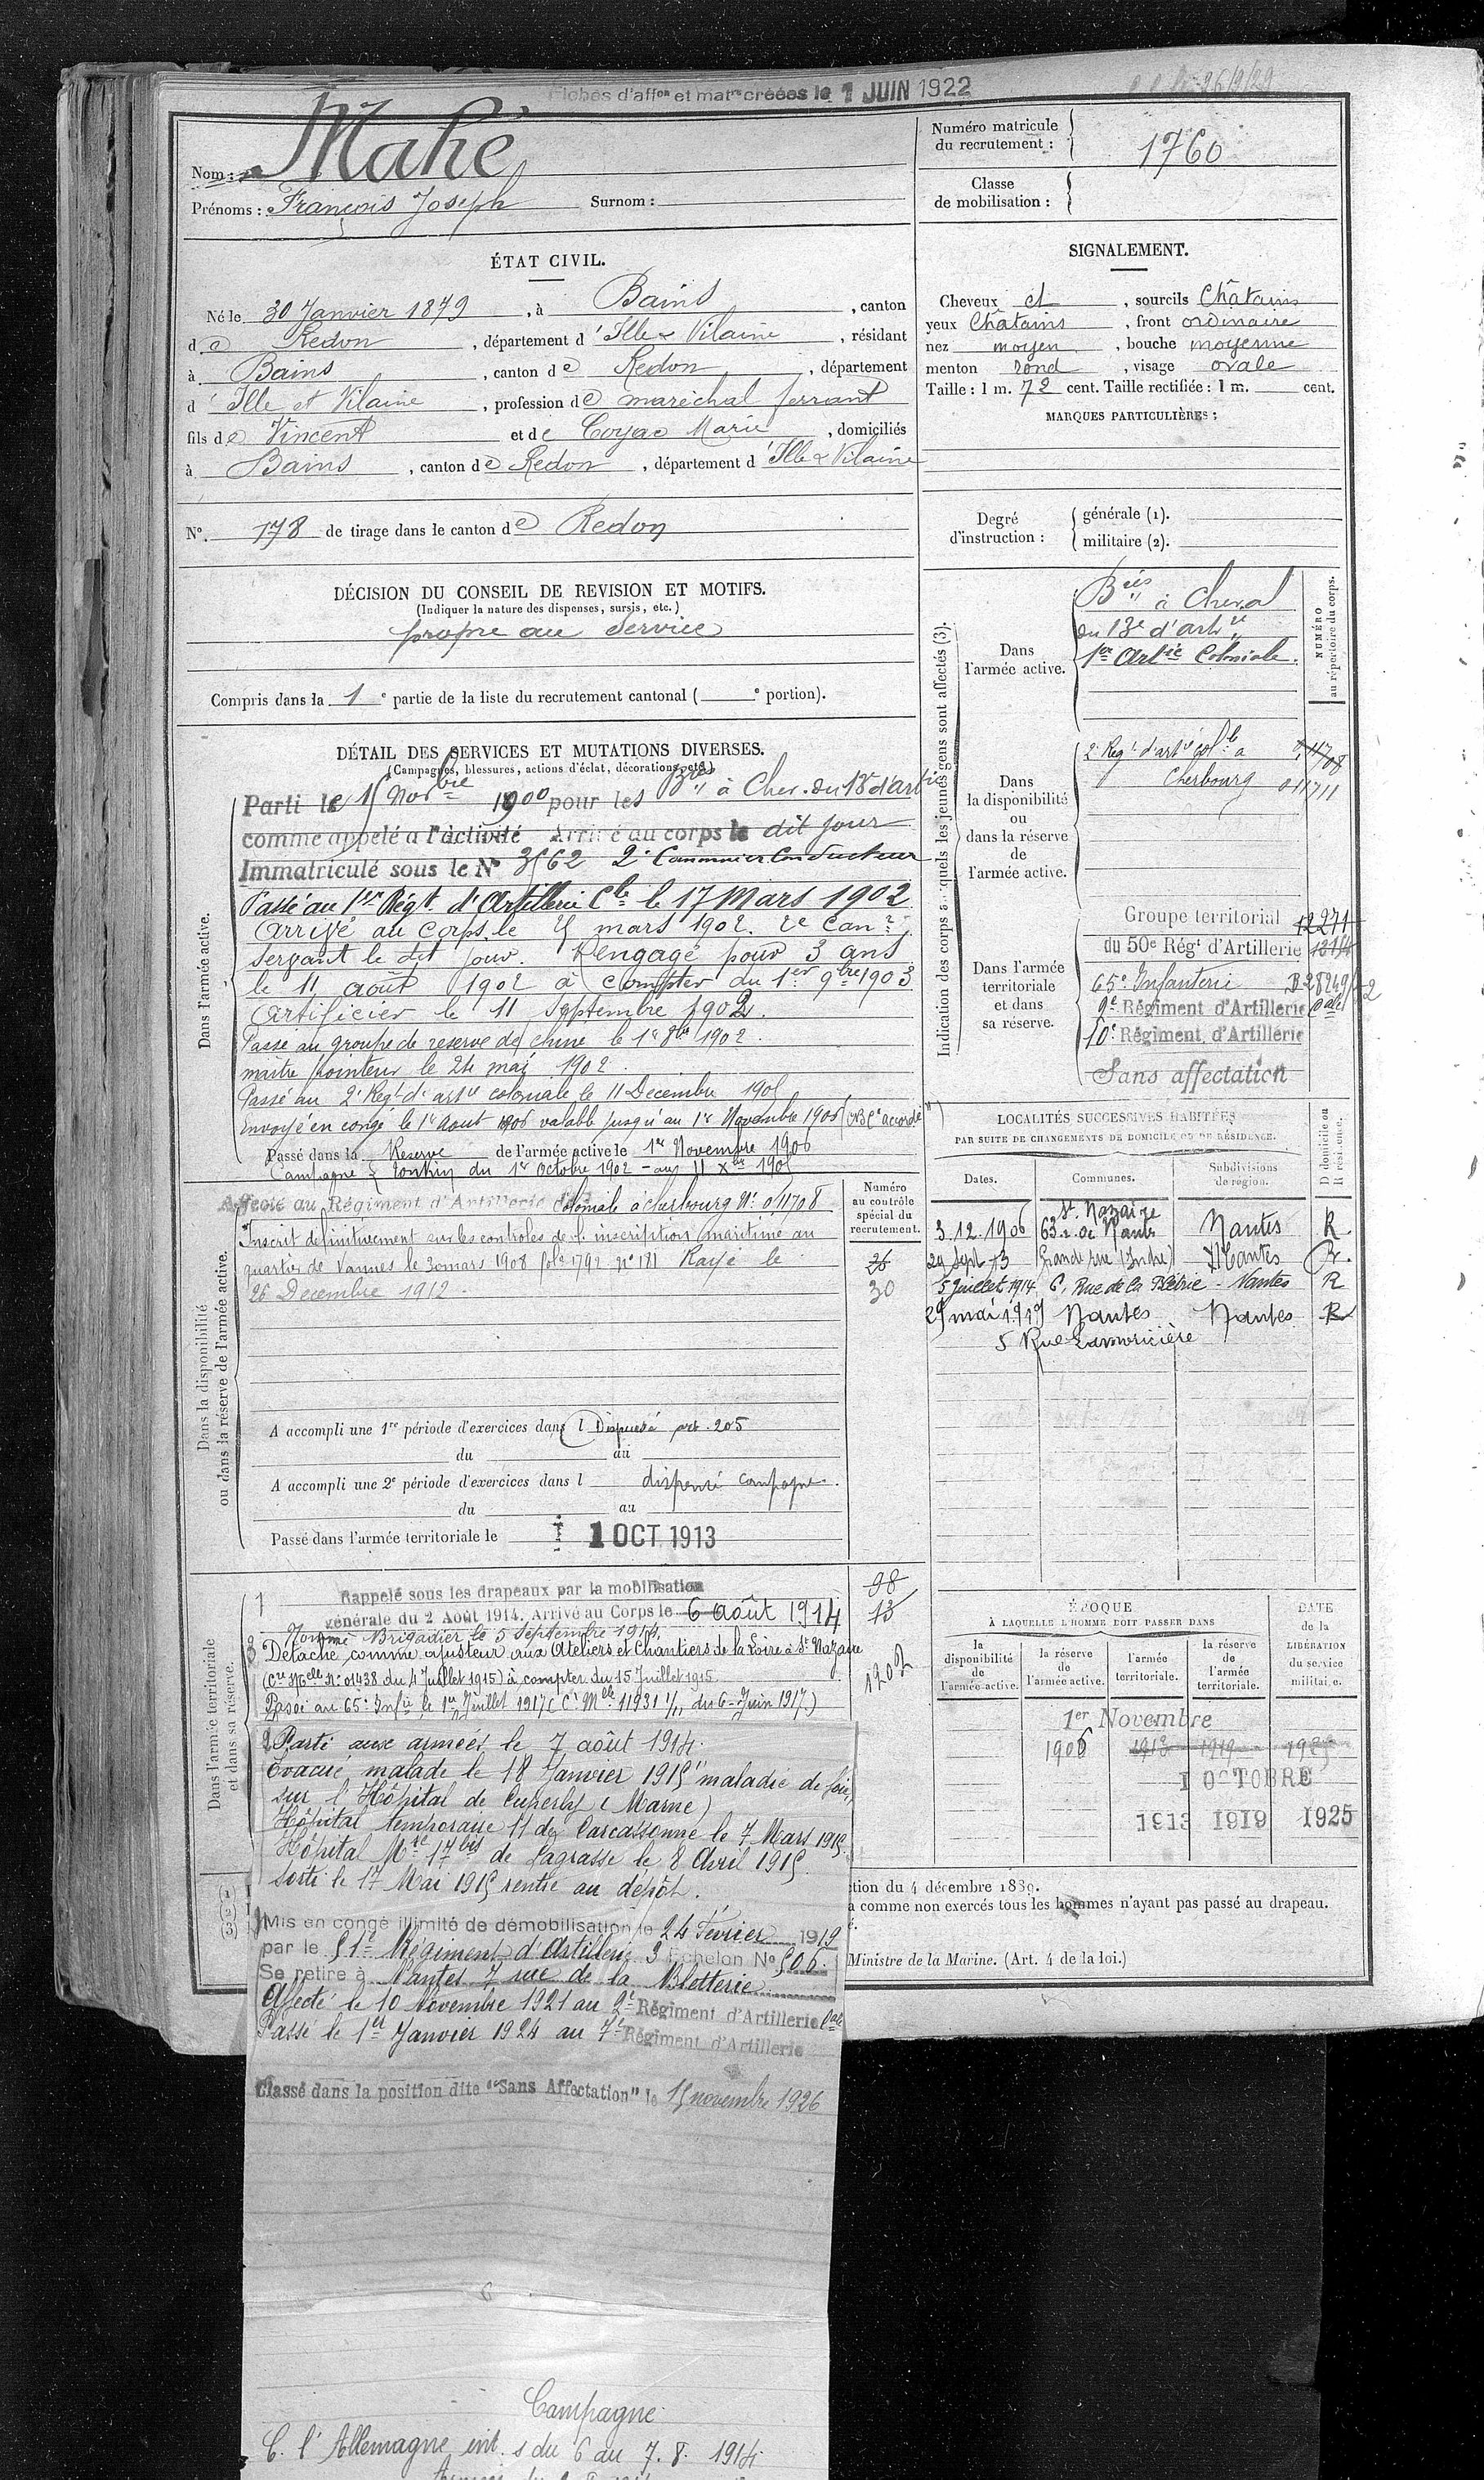 Fiches d'affon et matre créées le 1 JUIN 1922
Nom : Mahé
Prénoms : François Joseph Surnom :
Numéro matricule du recrutement : 1760
Classe de mobilisation :
ÉTAT CIVIL.
Né le 30 Janvier 1879, à Bains, canton
de Redon, département d'Ille & Vilaine, résidant
à Bains, canton de Redon, département
d'Ille et Vilaine, profession de maréchal ferrant
fils de Vincent et de Coyac Marie, domiciliés
à Bains, canton de Redon, département d'Ille & Vilaine
No. 178 de tirage dans le canton de Redon
SIGNALEMENT.
Cheveux et, sourcils Châtains
yeux Châtains, front ordinaire
nez moyen, bouche moyenne
menton rond, visage ovale
Taille : 1 m. 72 cent. Taille rectifiée : 1 m. cent.
MARQUES PARTICULIÈRES :
Degré d'instruction : générale (1).
militaire (2).
DÉCISION DU CONSEIL DE REVISION ET MOTIFS.
(Indiquer la nature des dispenses, sursis, etc.)
propre au Service
Compris dans la 1e partie de la liste du recrutement cantonal ( e portion).
DÉTAIL DES SERVICES ET MUTATIONS DIVERSES.
(Campagnes, blessures, actions d'éclat, décorations, etc.)
Dans l'armée active.
Parti le 15 Novbre 1900 pour les Bries à Chev. du 13e d'artie
comme appelé à l'activité Arrivé au corps le dit jour
Immatriculé sous le No 3562 2e Canonnier Conducteur
Passé au 1er Régt. d'Artillerie Cle le 17 Mars 1902
Arrivé au corps le mars 1902. 2e Canr
servant le dit jour. Rengagé pour 3 ans
le 11 août 1902 à compter du 1er 9bre 1903
Artificier le 11 Septembre 1902.
Passé au groupe de réserve de chine le 1er 8bre 1902.
maître pointeur le 24 mai 1902.
Passé au 2e Régt d'artie coloniale le 11 Décembre 1905
envoyé en congé le 1er Aout 1906 valable jusqu'au 1er Novembre 1906 accordé
Passé dans la Réserve de l'armée active le 1er Novembre 1906
Campagne : Tonkin du 1er Octobre 1902 - au 11 Xbre 1905
Dans la disponibilité ou dans la réserve de l'armée active.
Affecté au Régiment d'Artillerie Coloniale à Cherbourg No 0/11708
Inscrit définitivement sur les controles de l'inscription maritime au
quartier de Vannes le 30 mars 1908 folo 1792 no 181 Rayé le
26 Decembre 1912
A accompli une 1re période d'exercices dans l Dispensé art. 205
du au
A accompli une 2e période d'exercices dans l dispensé campagne.
du au
Passé dans l'armée territoriale le 1 OCT 1913
Numéro au contrôle spécial du recrutement.
26
30
98
13
1202
Dans l'armée territoriale et dans sa réserve.
1 Rappelé sous les drapeaux par la mobilisation
générale du 2 Août 1914. Arrivé au Corps le 6 août 1914
Nommé Brigadier le 5 Septembre 1914.
3 Détaché comme ajusteur aux Ateliers et Chantiers de la Loire à St Nazaire
(Cre Mlle No 01438 du 4 Juillet 1915) à compter du 15 Juillet 1915.
Passé au 65e Infie le 1er Juillet 1917 (Ce Mlle 11931 1/11 du 6 Juin 1917)
2 Parti aux armées le 7 août 1914.
Évacué malade le 18 Janvier 1915 "maladie de foie"
sur l'Hôpital de Cuperly (Marne)
Hôpital temporaire 11 de Carcassonne le 7 Mars 1915.
Hôpital Mre 17bis de Lagrasse le 8 Avril 1915.
Sorti le 17 Mai 1915 rentré au dépôt.
Mis en congé illimité de démobilisation le 24 Février 1919
par le 51e Régiment d'Artillerie 3 Echelon No 506.
Se retire à Nantes 7 rue de la Blotterie
Affecté le 10 Novembre 1921 au 2e Régiment d'Artillerie Cale
Passé le 1er Janvier 1924 au 7e Régiment d'Artillerie
Classé dans la position dite "Sans Affectation" le 15 novembre 1926
Campagne
C. l'Allemagne int. s du 6 au 7. 8. 1914
Indication des corps auxquels les jeunes gens sont affectés (3).
NUMÉRO au répertoire du corps.
Dans l'armée active.
Bries à Cheval
du 13e d'artie
1er Artie Coloniale.
Dans la disponibilité ou dans la réserve de l'armée active.
2e Régt d'artie colle à 0,11708
Cherbourg 0 11711
Dans l'armée territoriale et dans sa réserve.
Groupe territorial 12271
du 50e Régt d'Artillerie 1314
65e Infanterie
2e Régiment d'Artillerie Cale
10e Régiment d'Artillerie
Sans affectation
LOCALITÉS SUCCESSIVES HABITÉES
PAR SUITE DE CHANGEMENTS DE DOMICILE OU DE RÉSIDENCE.
Dates. Communes. Subdivisions de région. D domicile ou R résidence.
3.12.1906 St Nazaire 63 r. de Nantes Nantes R
29 Sept 13 Grande rue (Indre) Nantes R.
5 Juillet 1914 6, Rue de la - Nantes R
29 mai 1919 Nantes Nantes R
5 Rue Lamoricière
ÉPOQUE
À LAQUELLE L'HOMME DOIT PASSER DANS
la disponibilité de l'armée active. la réserve de l'armée active. l'armée territoriale. la réserve de l'armée territoriale. DATE de la LIBÉRATION du service militaire.
1er Novembre
1906 1913 1919 1925
1 OCTOBRE
1913 1919 1925
(1)
(2)
(3)
ction du 4 décembre 1889.
a comme non exercés tous les hommes n'ayant pas passé au drapeau.
Ministre de la Marine. (Art. 4 de la loi.)